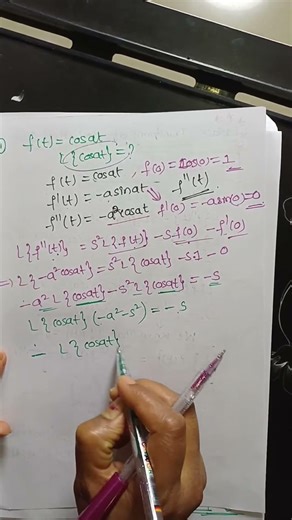 f(t) = cosat
L{cosat} = ?
f(t) = cosat, f(0) = cos(0) = 1
f'(t) = -a sinat f''(t)
f''(t) = -a²cosat f'(0) = -a sin(0) = 0
L{f''(t)} = s²L{f(t)} - s f(0) - f'(0)
⇒ L{-a²cosat} = s²L{cosat} - s.1 - 0
∴ -a² L{cosat} - s²L{cosat} = -s
L{cosat}(-a²-s²) = -s
∴ L{cosat}